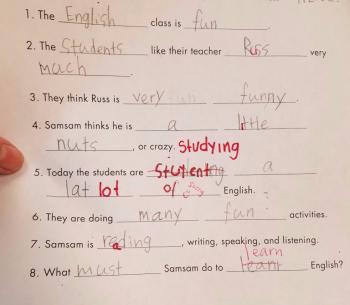 1. The English class is fun
2. The Students like their teacher Russ very
much.
3. They think Russ is very funny.
4. Samsam thinks he is a little
nuts, or crazy. studying
5. Today the students are student a
lat lot of English.
6. They are doing many fun activities.
7. Samsam is reading, writing, speaking, and listening.
learn
8. What must Samsam do to leant English?